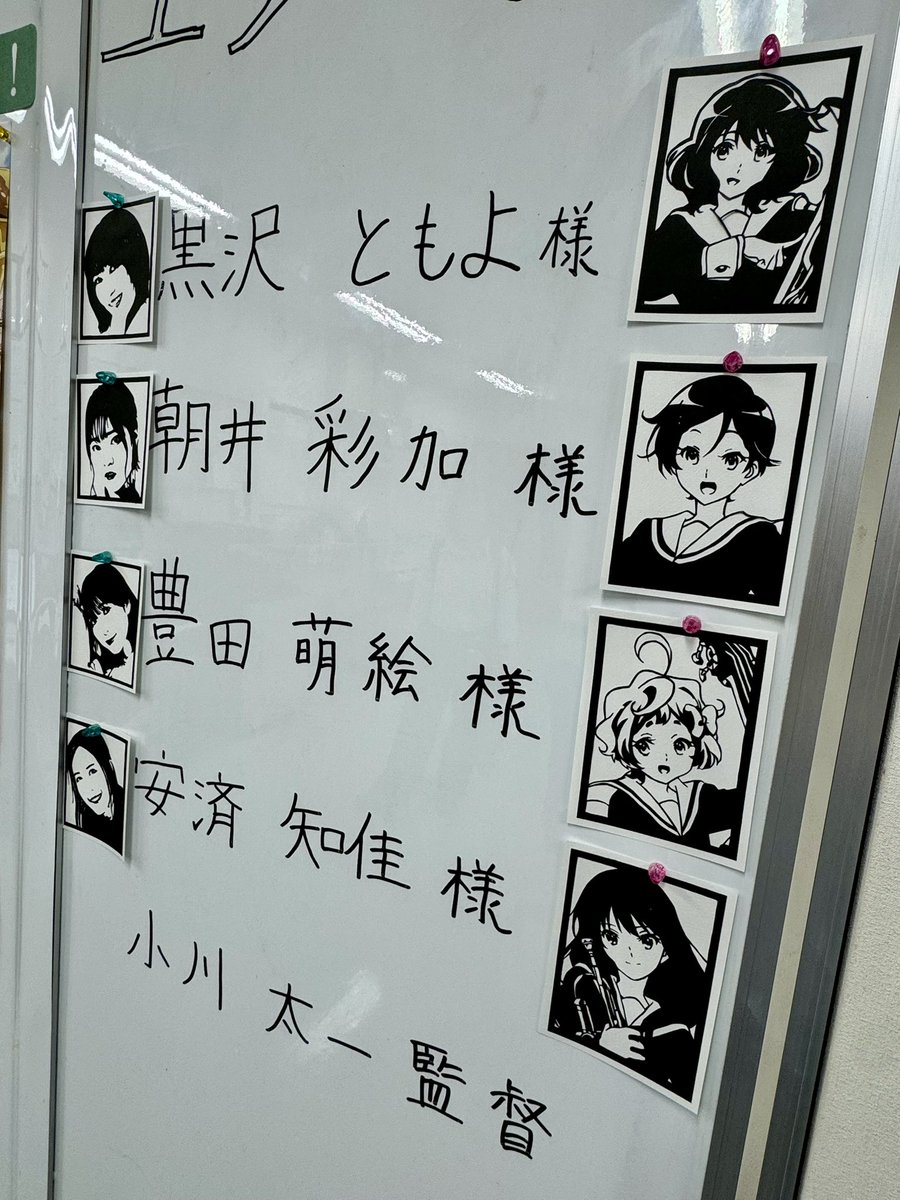 黒沢 ともよ 様
朝井 彩加 様
豊田 萌絵 様
安済 知佳 様
小川 太一 監督